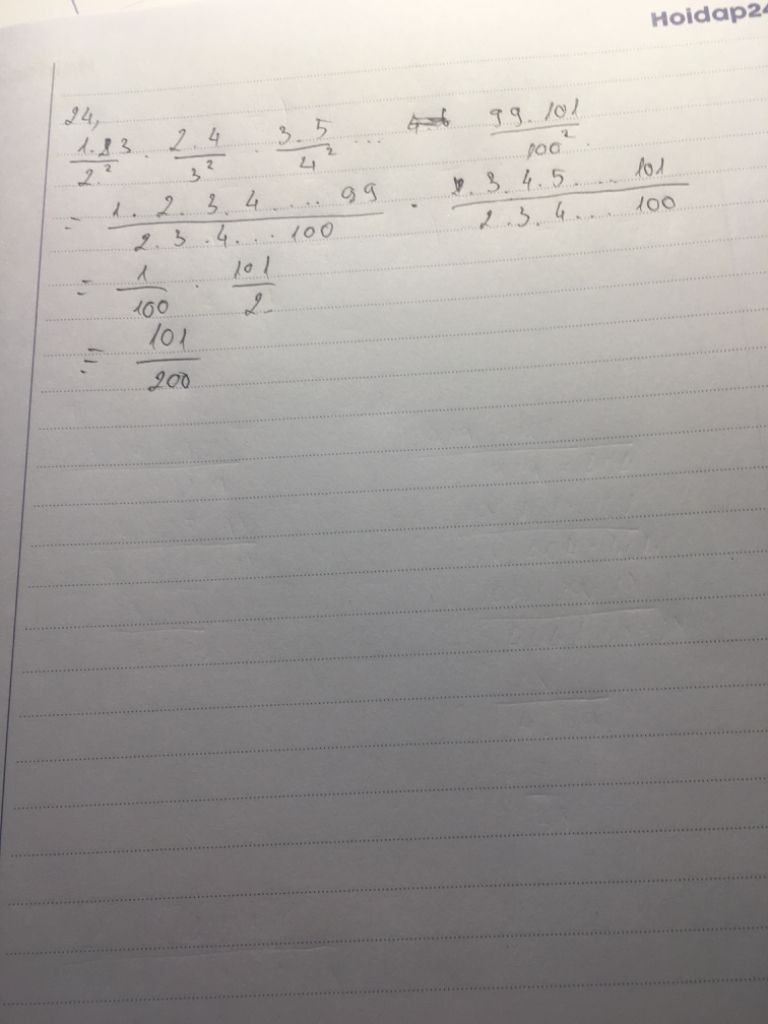 Hoidap24
24,
1.3/2² . 2.4/3² . 3.5/4² ... 99.101/100²
= 1.2.3.4....99/2.3.4...100 . 3.4.5....101/2.3.4...100
= 1/100 . 101/2
= 101/200